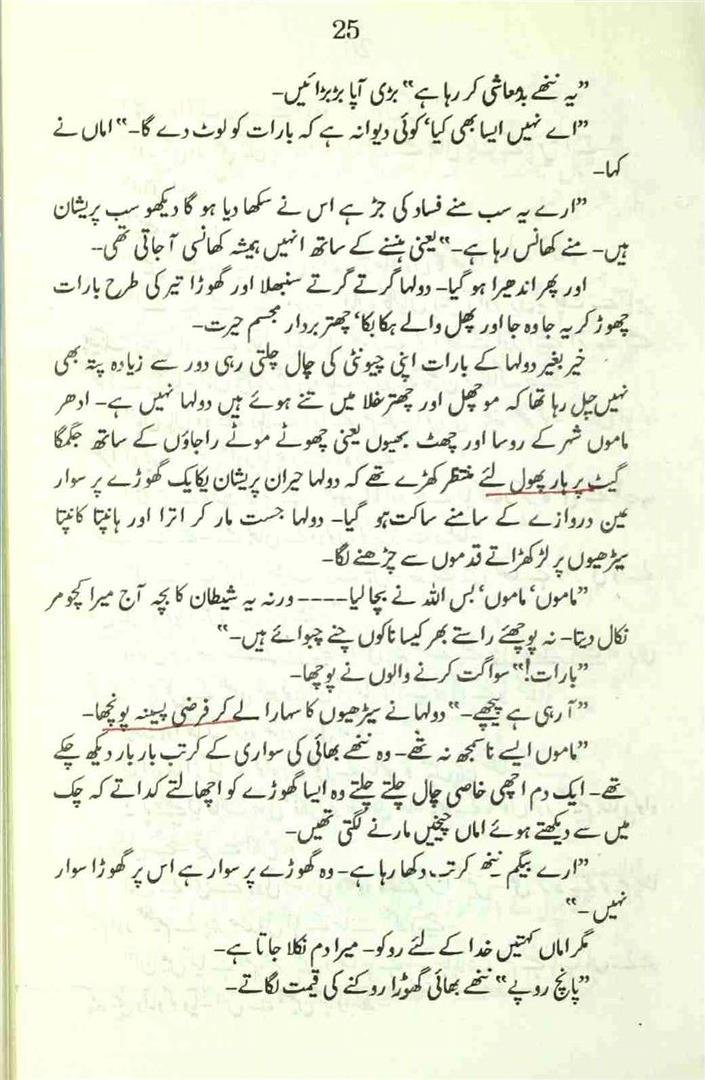 25
”یہ ننھے بدمعاشی کر رہا ہے“ بڑی آپا بڑبڑائیں۔
”اے نہیں ایسا بھی کیا‘ کوئی دیوانہ ہے کہ بارات کو لوٹ دے گا۔“ اماں نے
کہا۔
”ارے یہ سب منے فساد کی جڑ ہے اس نے سکھا دیا ہو گا دیکھو سب پریشان
ہیں۔ منے کھانس رہا ہے۔“ یعنی ہنسنے کے ساتھ انہیں ہمیشہ کھانسی آ جاتی تھی۔
اور پھر اندھیرا ہو گیا۔ دولہا گرتے گرتے سنبھلا اور گھوڑا تیر کی طرح بارات
چھوڑ کر یہ جا وہ جا اور پھل والے ہکا بکا‘ چھتر بردار مجسم حیرت۔
خیر بغیر دولہا کے بارات اپنی چیونٹی کی چال چلتی رہی دور سے زیادہ پتہ بھی
نہیں چل رہا تھا کہ مورچھل اور چھتر خلا میں تنے ہوئے ہیں دولہا نہیں ہے۔ ادھر
ماموں شہر کے روسا اور چھٹ بھیوں یعنی چھوٹے موٹے راجاؤں کے ساتھ جگمگا
گیٹ پر ہار پھول لئے منتظر کھڑے تھے کہ دولہا حیران پریشان یکایک گھوڑے پر سوار
عین دروازے کے سامنے ساکت ہو گیا۔ دولہا جست مار کر اترا اور ہانپتا کانپتا
سیڑھیوں پر لڑکھڑاتے قدموں سے چڑھنے لگا۔
”ماموں‘ ماموں‘ بس اللہ نے بچا لیا۔۔۔۔ ورنہ یہ شیطان کا بچہ آج میرا کچومر
نکال دیتا۔ نہ پوچھئے راستے بھر کیسا ناکوں چنے چبوائے ہیں۔“
”بارات!“ سواگت کرنے والوں نے پوچھا۔
”آ رہی ہے پیچھے۔“ دولہا نے سیڑھیوں کا سہارا لے کر فرضی پسینہ پونچھا۔
”ماموں ایسے ناسمجھ نہ تھے۔ وہ ننھے بھائی کی سواری کے کرتب بار بار دیکھ چکے
تھے۔ ایک دم اچھی خاصی چال چلتے چلتے وہ ایسا گھوڑے کو اچھالتے کداتے کہ چک
میں سے دیکھتے ہوئے اماں چیخیں مارنے لگتی تھیں۔
”ارے بیگم ننھے کرتب دکھا رہا ہے۔ وہ گھوڑے پر سوار ہے اس پر گھوڑا سوار
نہیں۔“
مگر اماں کہتیں خدا کے لئے روکو۔ میرا دم نکلا جاتا ہے۔
”پانچ روپے“ ننھے بھائی گھوڑا روکنے کی قیمت لگاتے۔